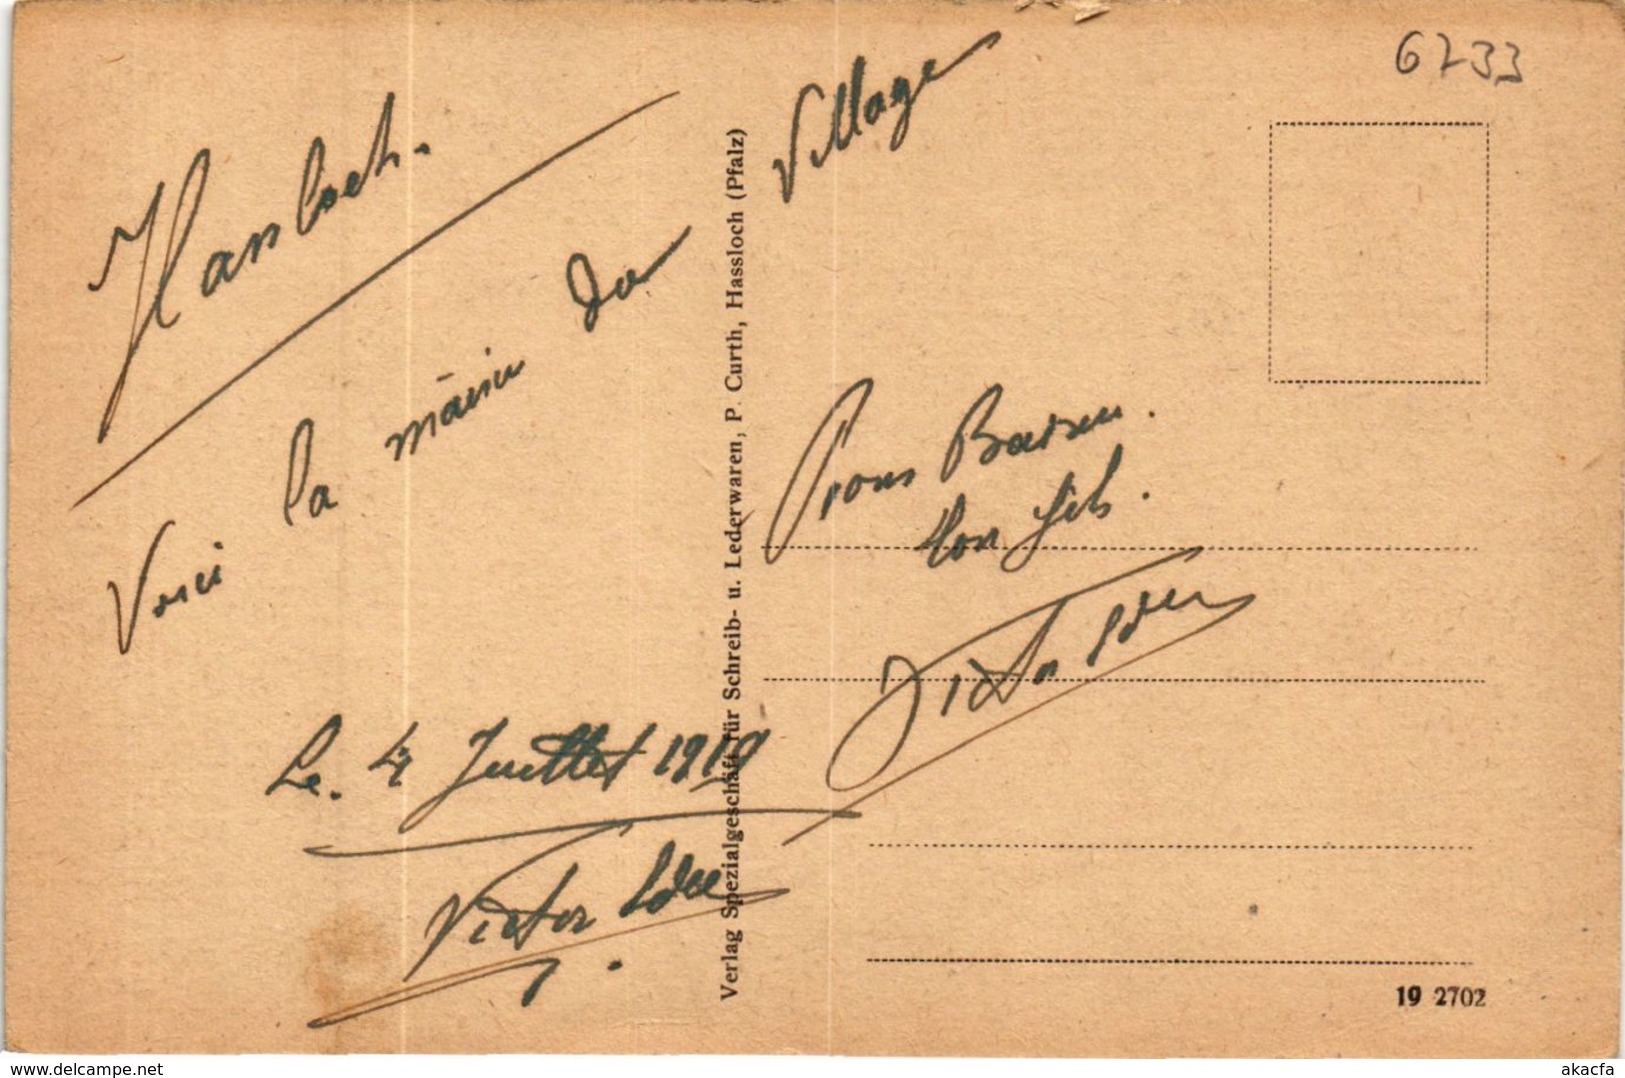 6233
Hansloch.
Voici la mairie du Village
Verlag Spezialgeschäft für Schreib- u. Lederwaren, P. Curth, Hassloch (Pfalz)
Bons Baisers.
Ton fils.
Victor
Le. 4 Juillet 1919
Victor
19 2702
akacfa
www.delcampe.net